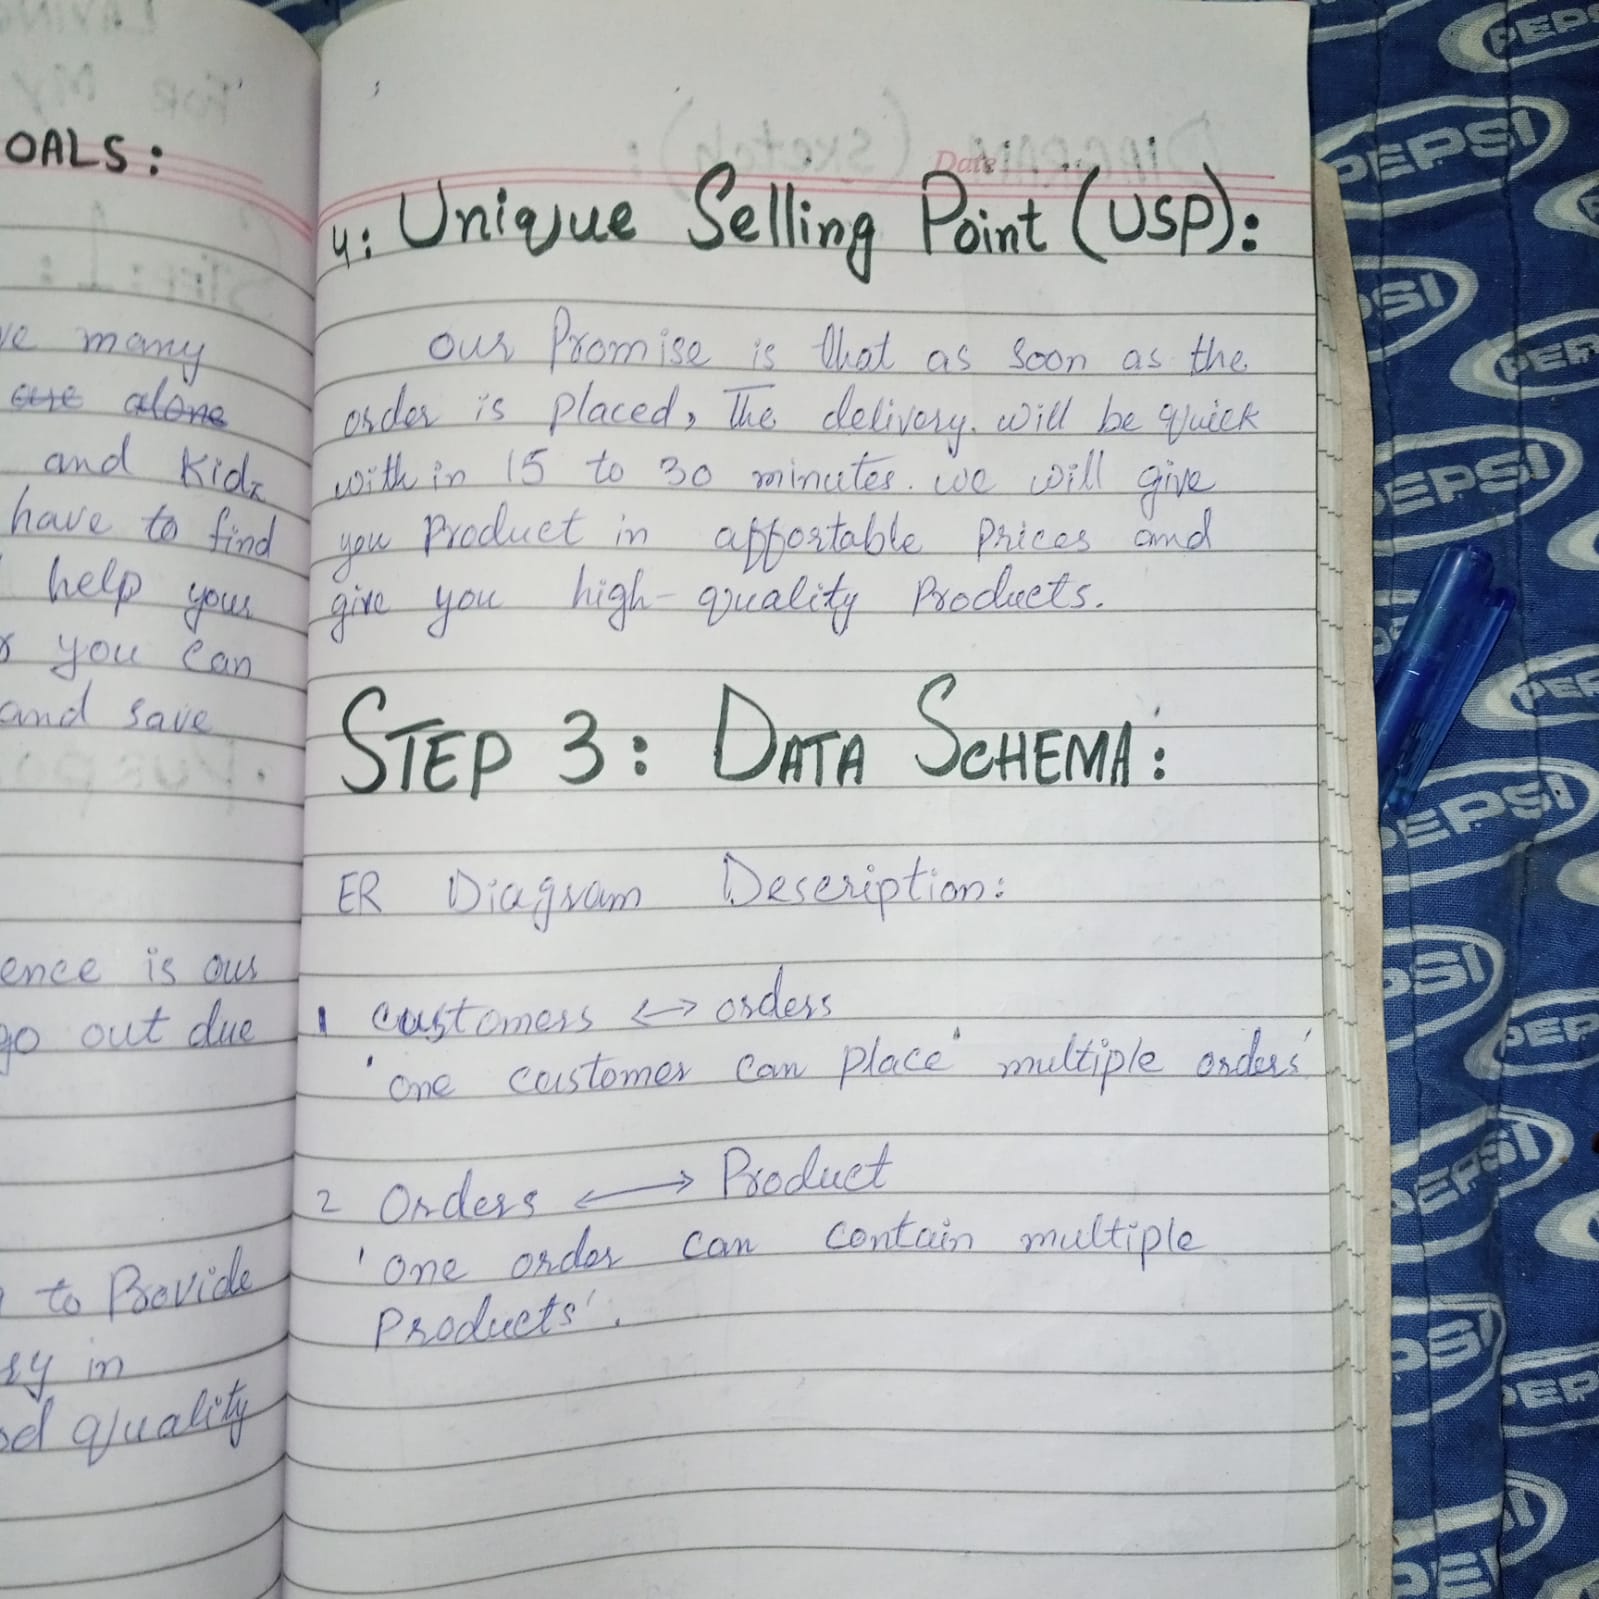 OALS:
ve many
are alone
and Kidz
have to find
help your
you can
and save
ence is our
go out due
to Provide
in
quality
Date
4: Unique Selling Point (USP):
our Promise is that as soon as the
order is placed, The delivery. will be quick
with in 15 to 30 minutes. we will give
you Product in affortable Prices and
give you high-quality Products.
STEP 3: DATA SCHEMA:
ER Diagram Description:
1 customers ↔ orders
'one customer can place' multiple orders'
2 Orders ⟷ Product
'one order can contain multiple
Products'.
PEPSI
PEPSI
PEPSI
PEPSI
PEPSI
PEPSI